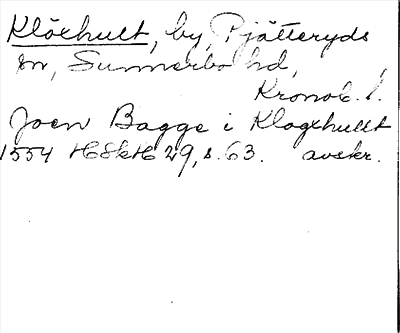 Klöxhult, by, Pjätteryds
sn, Sunnerbo hd,
Kronob. l.
Joen Bagge i Klogxhullt
1554 HSkH 29, s. 63. avskr.